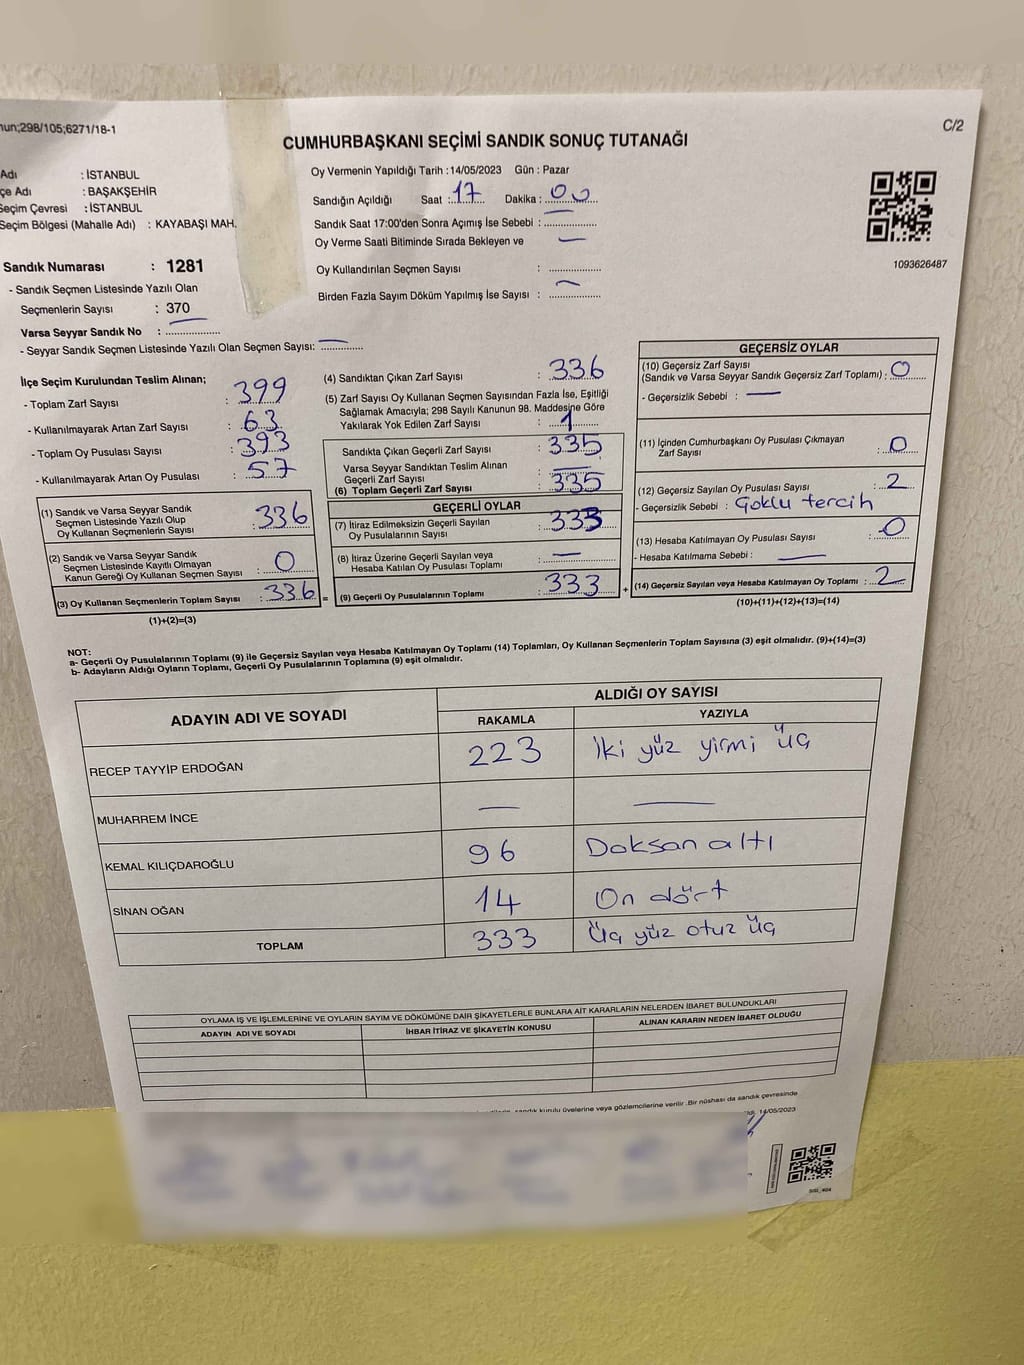 nun;298/105;6271/18-1
C/2
CUMHURBAŞKANI SEÇİMİ SANDIK SONUÇ TUTANAĞI
Adı : İSTANBUL
çe Adı : BAŞAKŞEHİR
Seçim Çevresi : İSTANBUL
Seçim Bölgesi (Mahalle Adı) : KAYABAŞI MAH.
Sandık Numarası : 1281
- Sandık Seçmen Listesinde Yazılı Olan
Seçmenlerin Sayısı : 370
Varsa Seyyar Sandık No :
- Seyyar Sandık Seçmen Listesinde Yazılı Olan Seçmen Sayısı: —
Oy Vermenin Yapıldığı Tarih : 14/05/2023 Gün : Pazar
Sandığın Açıldığı Saat : 17 Dakika : 00
Sandık Saat 17:00'den Sonra Açımış İse Sebebi : —
Oy Verme Saati Bitiminde Sırada Bekleyen ve
Oy Kullandırılan Seçmen Sayısı : —
Birden Fazla Sayım Döküm Yapılmış İse Sayısı : —
1093626487
İlçe Seçim Kurulundan Teslim Alınan;
- Toplam Zarf Sayısı : 399
- Kullanılmayarak Artan Zarf Sayısı : 63
- Toplam Oy Pusulası Sayısı : 393
- Kullanılmayarak Artan Oy Pusulası : 57
(1) Sandık ve Varsa Seyyar Sandık
Seçmen Listesinde Yazılı Olup
Oy Kullanan Seçmenlerin Sayısı : 336
(2) Sandık ve Varsa Seyyar Sandık
Seçmen Listesinde Kayıtlı Olmayan
Kanun Gereği Oy Kullanan Seçmen Sayısı : 0
(3) Oy Kullanan Seçmenlerin Toplam Sayısı : 336 =
(1)+(2)=(3)
(4) Sandıktan Çıkan Zarf Sayısı : 336
(5) Zarf Sayısı Oy Kullanan Seçmen Sayısından Fazla İse, Eşitliği
Sağlamak Amacıyla; 298 Sayılı Kanunun 98. Maddesine Göre
Yakılarak Yok Edilen Zarf Sayısı : 1
Sandıkta Çıkan Geçerli Zarf Sayısı : 335
Varsa Seyyar Sandıktan Teslim Alınan
Geçerli Zarf Sayısı : —
(6) Toplam Geçerli Zarf Sayısı : 335
GEÇERLİ OYLAR
(7) İtiraz Edilmeksizin Geçerli Sayılan
Oy Pusulalarının Sayısı : 333
(8) İtiraz Üzerine Geçerli Sayılan veya
Hesaba Katılan Oy Pusulası Toplamı : —
(9) Geçerli Oy Pusulalarının Toplamı : 333 +
GEÇERSİZ OYLAR
(10) Geçersiz Zarf Sayısı
(Sandık ve Varsa Seyyar Sandık Geçersiz Zarf Toplamı) : 0
- Geçersizlik Sebebi : —
(11) İçinden Cumhurbaşkanı Oy Pusulası Çıkmayan
Zarf Sayısı : 0
(12) Geçersiz Sayılan Oy Pusulası Sayısı : 2
- Geçersizlik Sebebi : Çoklu tercih
(13) Hesaba Katılmayan Oy Pusulası Sayısı : 0
- Hesaba Katılmama Sebebi : —
(14) Geçersiz Sayılan veya Hesaba Katılmayan Oy Toplamı : 2
(10)+(11)+(12)+(13)=(14)
NOT:
a- Geçerli Oy Pusulalarının Toplamı (9) ile Geçersiz Sayılan veya Hesaba Katılmayan Oy Toplamı (14) Toplamları, Oy Kullanan Seçmenlerin Toplam Sayısına (3) eşit olmalıdır. (9)+(14)=(3)
b- Adayların Aldığı Oyların Toplamı, Geçerli Oy Pusulalarının Toplamına (9) eşit olmalıdır.
ADAYIN ADI VE SOYADI
ALDIĞI OY SAYISI
RAKAMLA YAZIYLA
RECEP TAYYİP ERDOĞAN 223 İki yüz yirmi üç
MUHARREM İNCE — —
KEMAL KILIÇDAROĞLU 96 Doksan altı
SİNAN OĞAN 14 On dört
TOPLAM 333 Üç yüz otuz üç
OYLAMA İŞ VE İŞLEMLERİNE VE OYLARIN SAYIM VE DÖKÜMÜNE DAİR ŞİKAYETLERLE BUNLARA AİT KARARLARIN NELERDEN İBARET BULUNDUKLARI
ADAYIN ADI VE SOYADI İHBAR İTİRAZ VE ŞİKAYETİN KONUSU ALINAN KARARIN NEDEN İBARET OLDUĞU
sandık kurulu üyelerine veya gözlemcilerine verilir .Bir nüshası da sandık çevresinde
14/05/2023